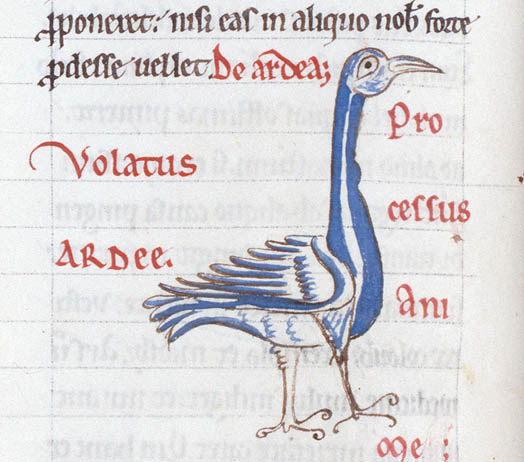 ꝓponeret: nisi eas in aliquo nob̃ forte
ꝓdesse uellet. De ardea;
Volatus
ARDEE.
Pro
cessus
Ani
me: